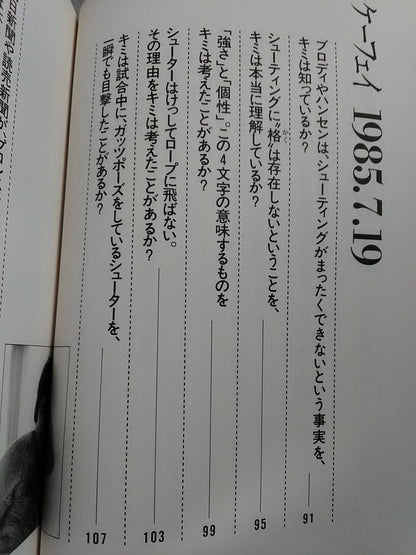 ケーフェイ 1985.7.19
ブロディやハンセンは、シューティングがまったくできないという事実を、
キミは知っているか?
91
シューティングに〝格〟は存在しないということを、
かく
キミは本当に理解しているか?
95
「強さ」と「個性」。この4文字の意味するものを
キミは考えたことがあるか?
99
シューターはけっしてロープに飛ばない。
その理由をキミは考えたことがあるか?
103
キミは試合中に、ガッツポーズをしているシューターを、
一瞬でも目撃したことがあるか?
107
日新聞や読売新聞が、プロレ